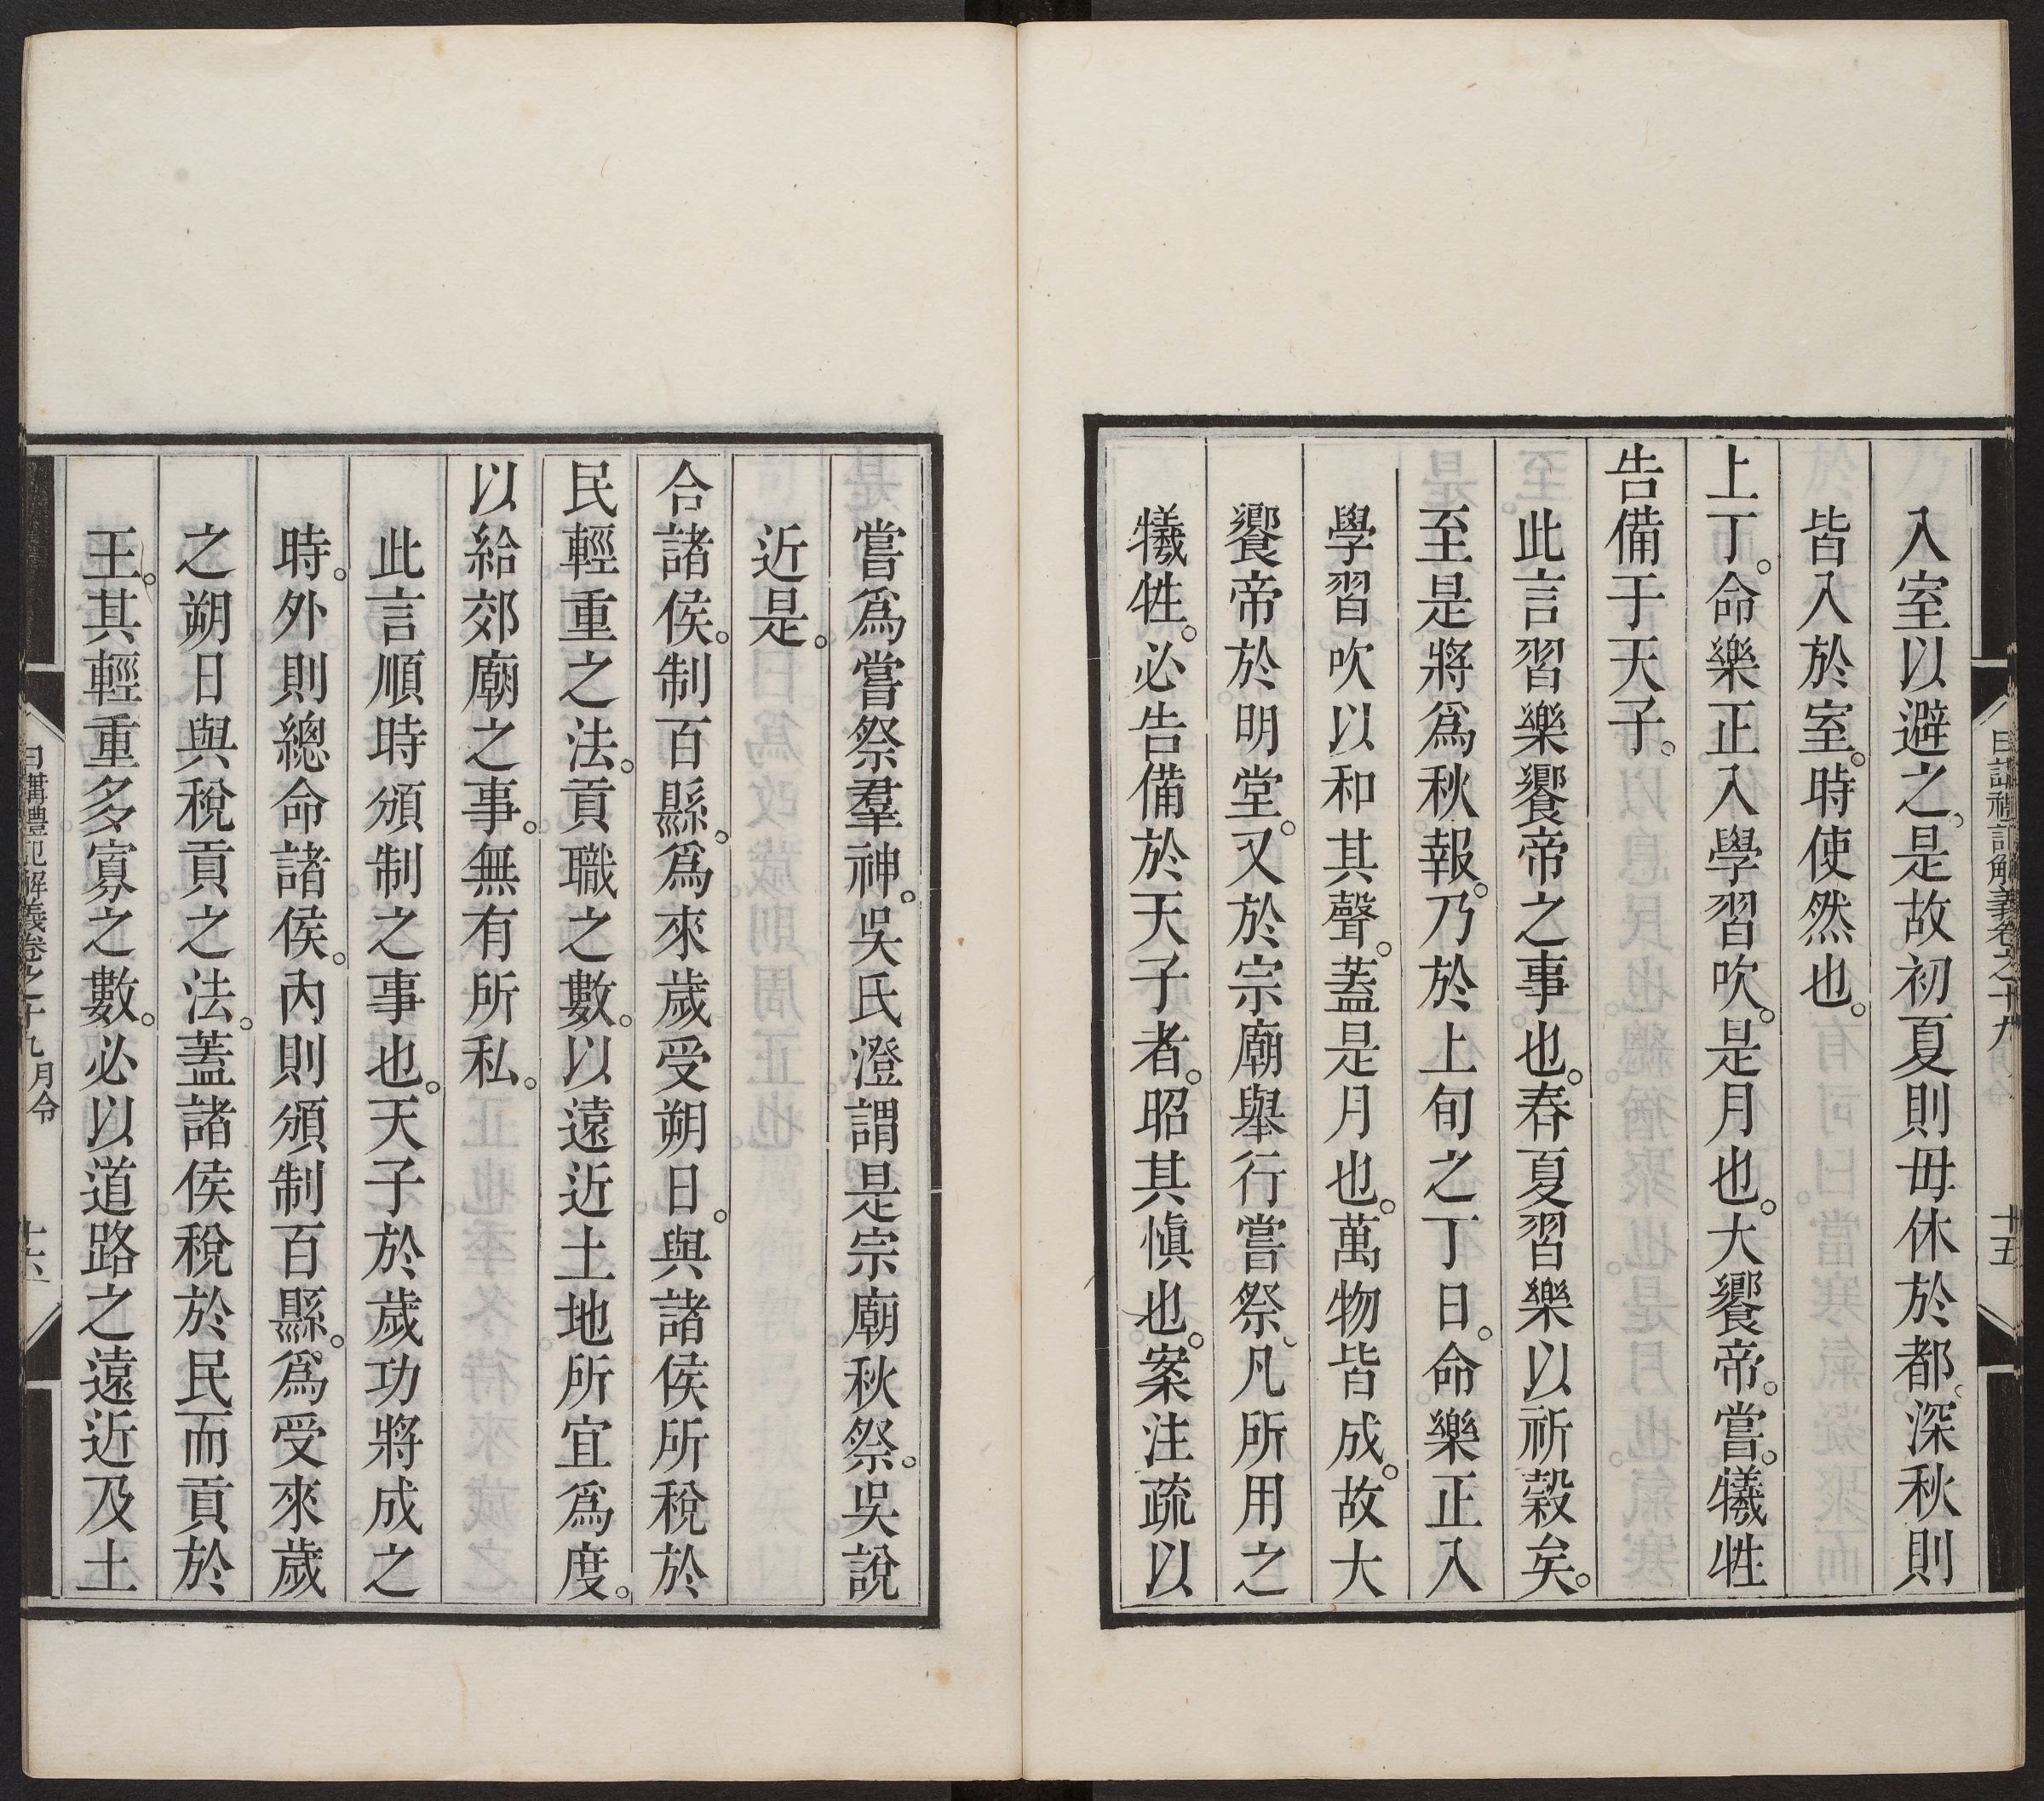 日講禮記解義卷之十九
十五
入室以避之。是故初夏則毋休於都。深秋則
皆入於室。時使然也。
上丁。命樂正入學習吹。是月也。大饗帝。嘗。犧牲
告備于天子。
此言習樂饗帝之事也。春夏習樂以祈穀矣。
至是將爲秋報。乃於上旬之丁日。命樂正入
學習吹以和其聲。蓋是月也。萬物皆成。故大
饗帝於明堂。又於宗廟舉行嘗祭。凡所用之
犧牲。必告備於天子者。昭其愼也。案注疏以
嘗爲嘗祭羣神。吳氏澄謂是宗廟秋祭。吳說
近是。
合諸侯。制百縣。爲來歲受朔日。與諸侯所稅於
民輕重之法。貢職之數。以遠近土地所宜爲度。
以給郊廟之事。無有所私。
此言順時頒制之事也。天子於歲功將成之
時。外則總命諸侯。內則頒制百縣。爲受來歲
之朔日與稅貢之法。蓋諸侯稅於民而貢於
王。其輕重多寡之數。必以道路之遠近及土
日講禮記解義卷之十九 月令
十六